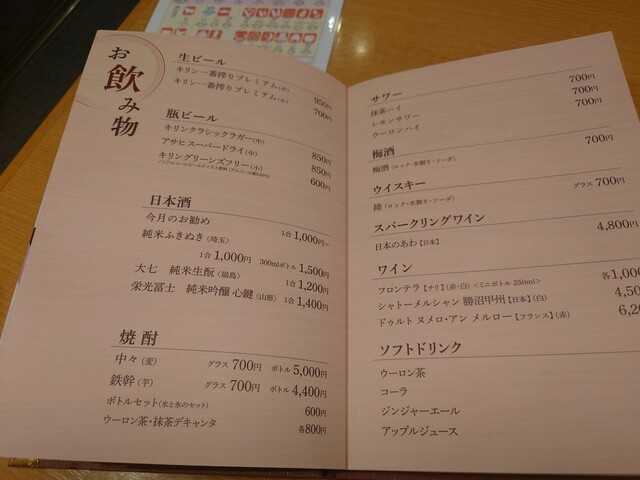 お飲み物
生ビール
キリン一番搾りプレミアム(中) 950円
キリン一番搾りプレミアム(小) 700円
瓶ビール
キリンクラシックラガー(中) 850円
アサヒスーパードライ(中) 850円
キリングリーンズフリー(小) 600円
日本酒
今月のお勧め 1合 1,000円~
純米ふきぬき〈埼玉〉
1合 1,000円 300mlボトル 1,500円
大七 純米生酛〈福島〉 1合 1,200円
栄光冨士 純米吟醸 心鍵〈山形〉 1合 1,400円
焼酎
中々(麦) グラス 700円 ボトル 5,000円
鉄幹(芋) グラス 700円 ボトル 4,400円
ボトルセット(水と氷のセット) 600円
ウーロン茶・抹茶デキャンタ 各800円
サワー
抹茶ハイ 700円
レモンサワー 700円
ウーロンハイ 700円
梅酒
梅酒(ロック・水割り・ソーダ) 700円
ウイスキー
陸(ロック・水割り・ソーダ) グラス 700円
スパークリングワイン
日本のあわ【日本】 4,800円
ワイン
フロンテラ【チリ】(赤・白)<ミニボトル 250ml> 各1,00
シャトーメルシャン 勝沼甲州【日本】(白) 4,50
ドゥルト ヌメロ・アン メルロー【フランス】(赤) 6,2
ソフトドリンク
ウーロン茶
コーラ
ジンジャーエール
アップルジュース